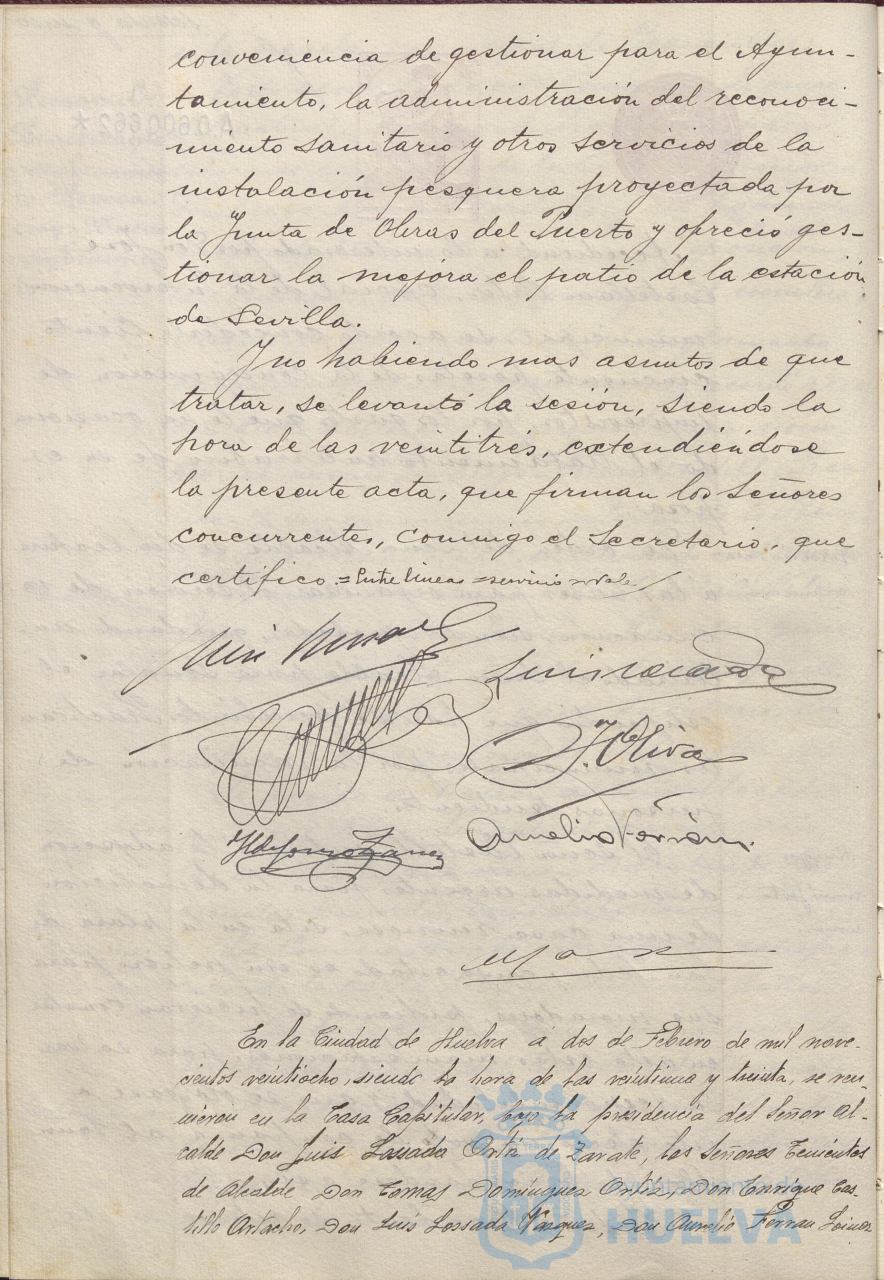 conveniencia de gestionar para el Ayun-
tamiento, la administración del reconoci-
miento sanitario y otros servicios de la
instalación pesquera proyectada por
la Junta de Obras del Puerto y ofreció ges-
tionar la mejora el patio de la estación
de Sevilla.
Y no habiendo mas asuntos de que
tratar, se levantó la sesión, siendo la
hora de las veintitrés, extendiéndose
la presente acta, que firman los Señores
concurrentes, conmigo el Secretario, que
certifico.=Entre lineas=servicio=vale
Luis Losada
J. Oliva
Aurelio Ferrán
En la Ciudad de Huelva á dos de Febrero de mil nove-
cientos veintiocho, siendo la hora de las veintiuna y treinta, se reu-
nieron en la Casa Capitular, bajo la presidencia del Señor Al-
calde Don Luis Lossada Ortiz de Zarate, los Señores Tenientes
de Alcalde Don Tomas Dominguez Ortiz, Don Enrique Cas-
tillo Artacho, Don Luis Lossada Vazquez, Don Aurelio Ferran
HUELVA